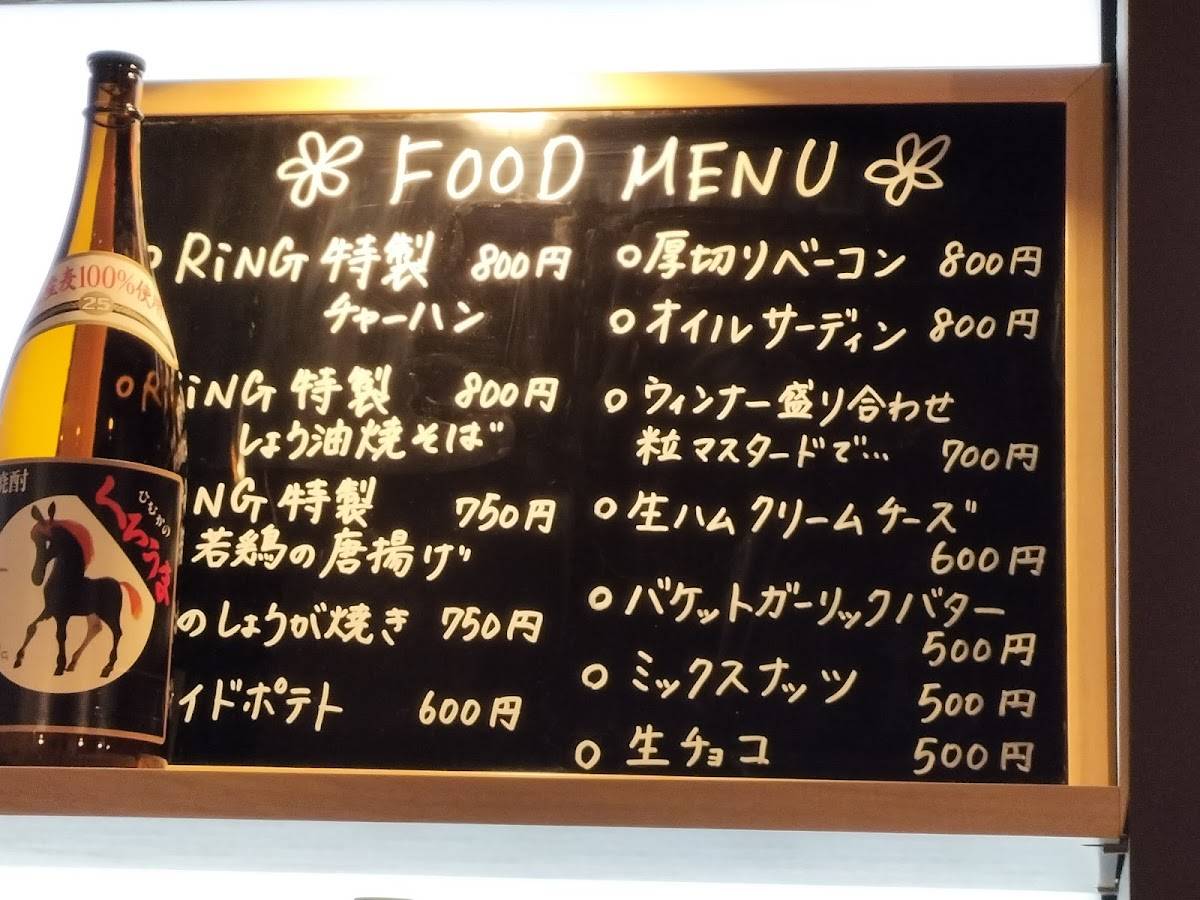 FOOD MENU
RiNG 特製 800円
チャーハン
RiNG 特製 800円
しょう油焼そば
NG 特製 750円
若鶏の唐揚げ
のしょうが焼き 750円
イドポテト 600円
○厚切りベーコン 800円
○オイルサーディン 800円
○ウィンナー盛り合わせ
粒マスタードで… 700円
○生ハムクリームチーズ
600円
○バケットガーリックバター
500円
○ミックスナッツ 500円
○生チョコ 500円
麦100%使
25
焼酎
ひむかの
くろうま